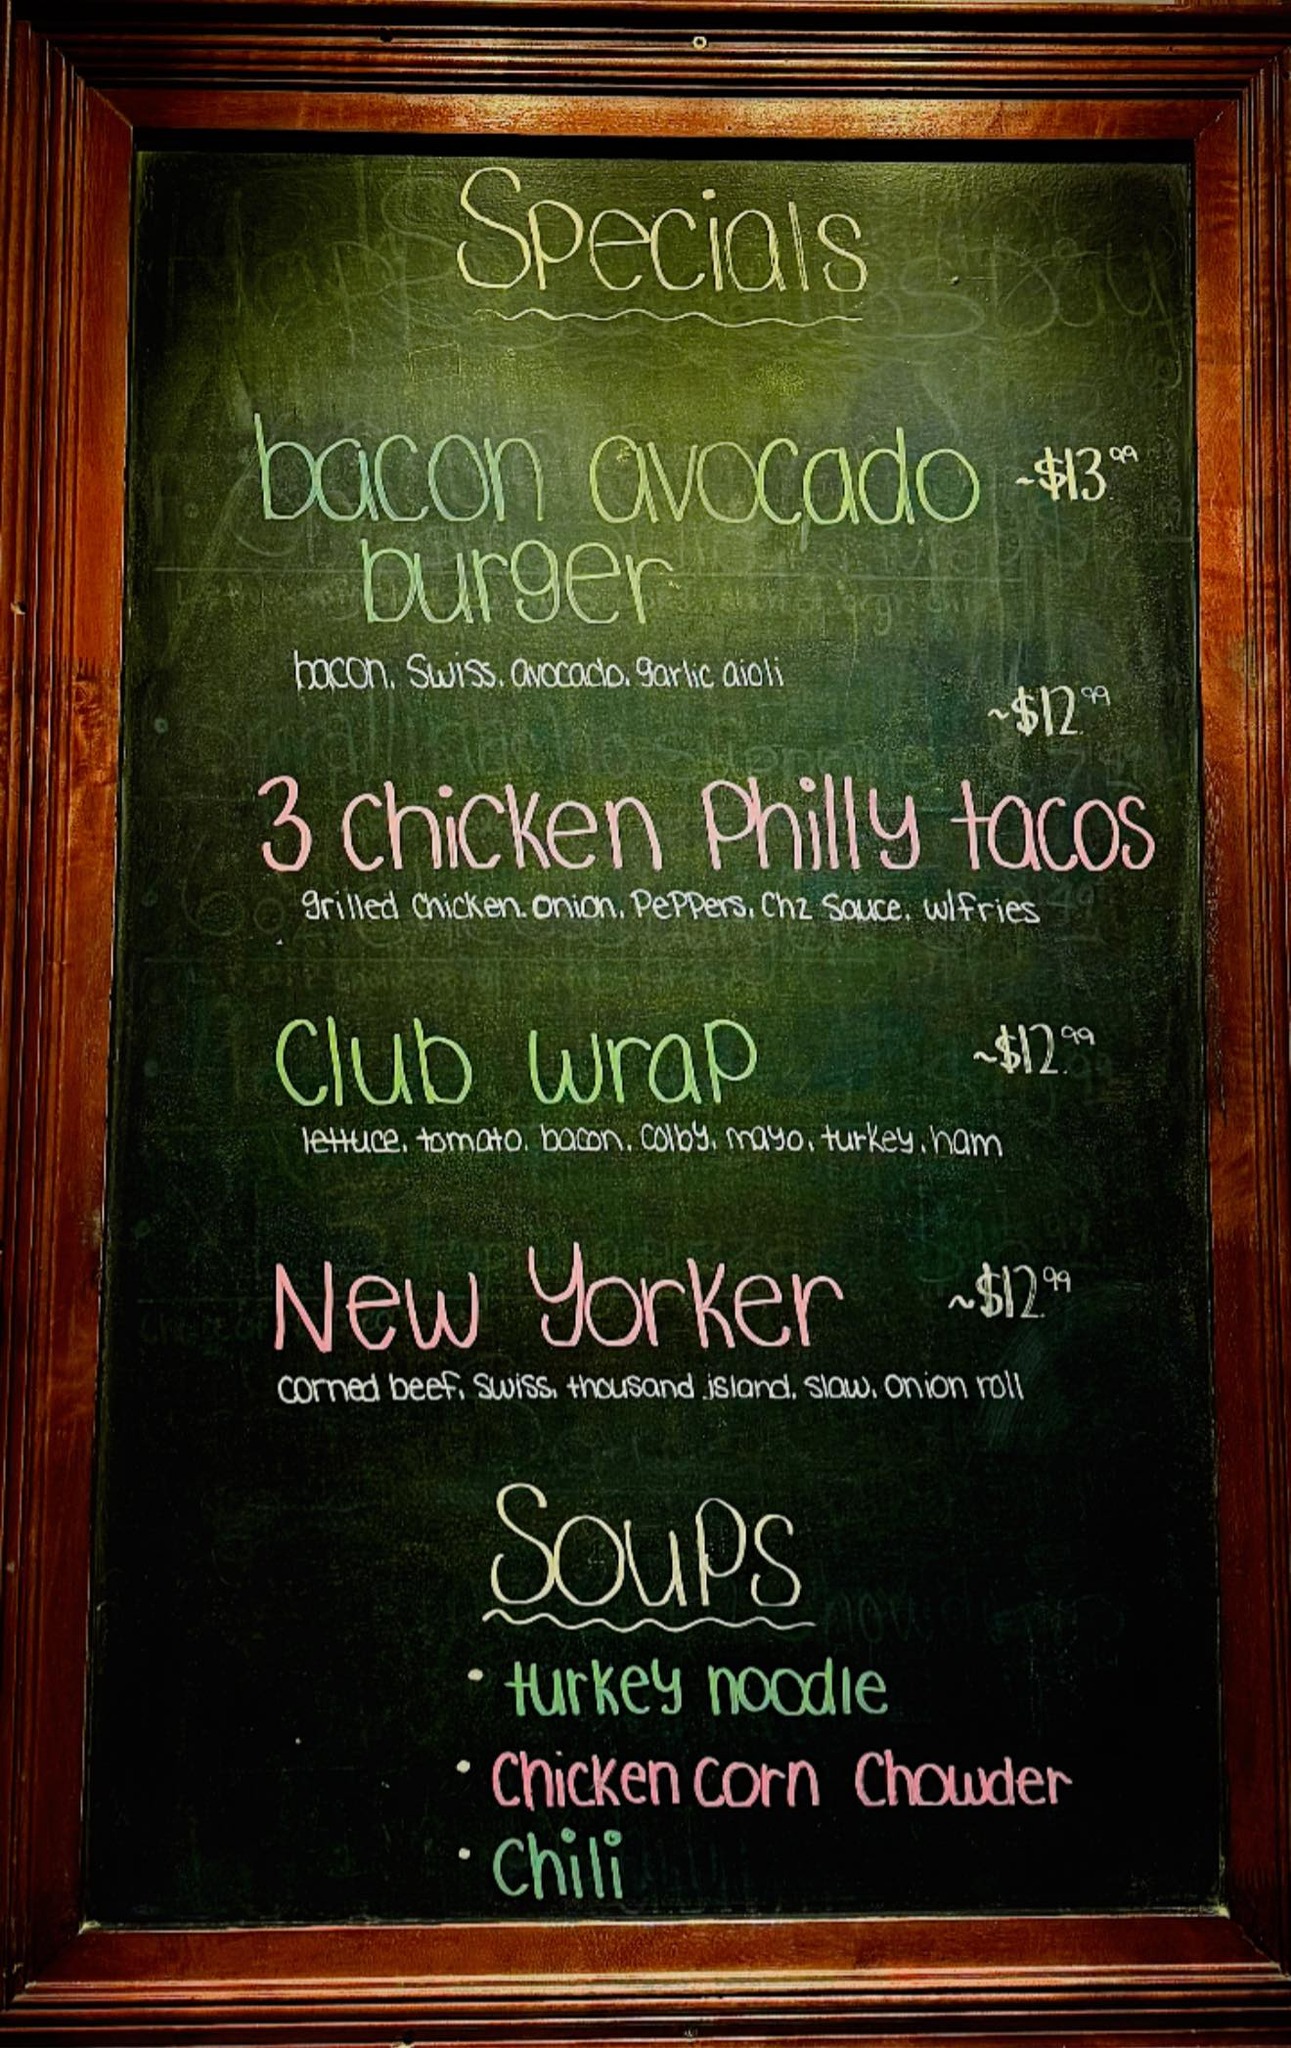 Specials
bacon avocado ~$13.99
burger
bacon, Swiss, avocado, garlic aioli
~$12.99
3 Chicken Philly tacos
grilled Chicken, onion, Peppers, Chz Sauce, w/fries
Club wrap ~$12.99
lettuce, tomato, bacon, Colby, mayo, turkey, ham
New Yorker ~$12.99
corned beef, Swiss, thousand island, Slaw, Onion roll
Soups
• turkey noodle
• Chicken corn Chowder
• Chili